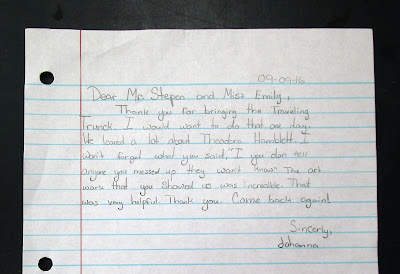 09-09-16
Dear Mr. Stepan and Miss Emily,
Thank you for bringing the Traveling
Trunck. I would want to do that one day.
We leared a lot about Theodora Hamblett. I
won't forget what you said, "I you don tell
anyone you messed up they won't know." The art
work that you showed us was increable. That
was very helpful. Thank you. Come back again!
Sincerly,
Johanna